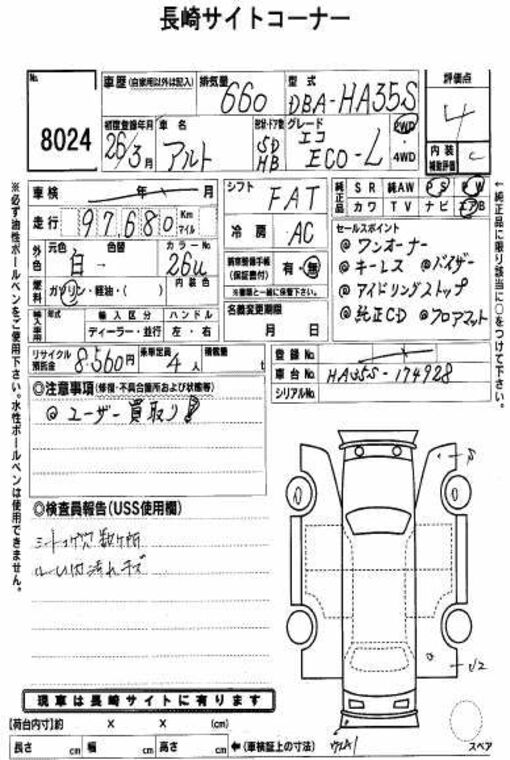 長崎サイトコーナー
No.
8024
車歴(自家用以外は記入)
排気量
660
型式
DBA-HA35S
評価点
4
初度登録年月
26/3月
車名
アルト
形状・ドア数
5D
HB
グレード
エコ
ECO-L
2WD
・
4WD
内装
補助評価
C
車検
年
月
シフト
FAT
純正品
SR
純AW
PS
PW
カワ
TV
ナビ
エアB
走行
97680
Km
マイル
冷房
AC
セールスポイント
@ワンオーナー
@キーレス @バイザー
@アイドリングストップ
@純正CD @フロアマット
外色
元色
色替
カラーNo.
白 -
26U
新車整備手帳
(保証書付)
有・無
※書類と一緒に保管下さい。
燃料
ガソリン・軽油・( )
内装色
名義変更期限
月 日
輸入車用
年式
輸入区分
ハンドル
ディーラー・並行
左・右
リサイクル
預託金
8,560円
乗車定員
4人
積載量
t
登録No.
車台No.
HA35S-174928
シリアルNo.
◎注意事項(修復・不具合箇所および状態等)
@ユーザー買取り!
◎検査員報告(USS使用欄)
シートコゲ穴数ヶ所
U2
現車は長崎サイトに有ります
【荷台内寸】約 × × (cm)
長さ cm 幅 cm 高さ cm ←(車検証上の寸法)
スペア
※必ず油性ボールペンをご使用下さい。水性ボールペンは使用できません。
←純正品に限り該当に○をつけて下さい。